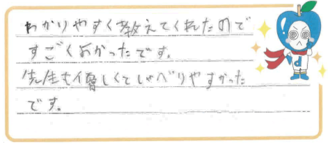 わかりやすく教えてくれたので
すごくよかったです。
先生も優しくてしゃべりやすかった
です。